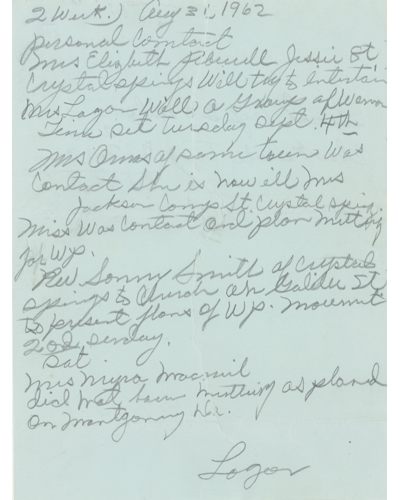 2 Week.) Aug 31, 1962
Personal Contact
Mrs Elizabeth Jessie St.
Crystal Springs Will try to entertain
Mrs Logan Well a Group of Women
Time Set Tuesday Sept. 4th
Mrs of same town Was
Contact She is now ill Mrs
Jackson Camps St. Crystal Spring
Miss Was Contact and plan Meeting
for WP.
Rev Sonny Smith of Crystal
Springs to Church on St.
to present plans of WP. Movement
2nd Sunday.
Sat
Mrs Myra
did Not have Meeting as planed
on Montgomery
Logan